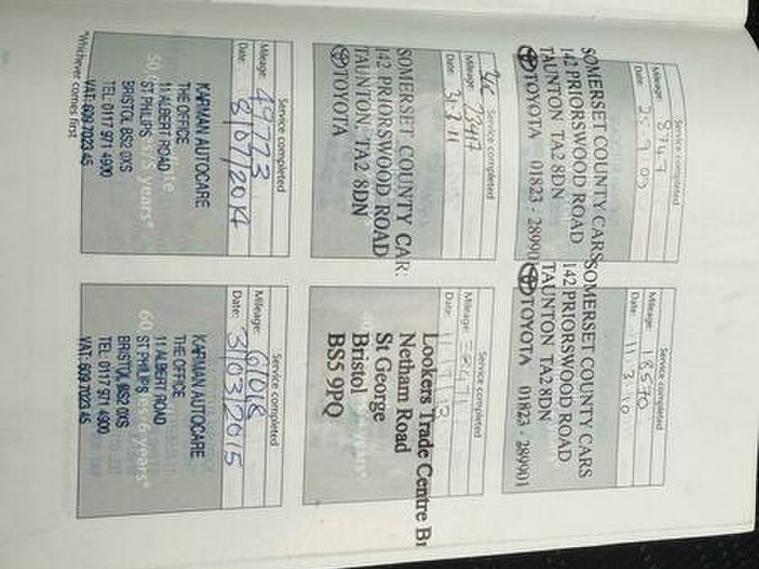 Service completed
Mileage: 8747
Date: 25.9.09
SOMERSET COUNTY CARS
142 PRIORSWOOD ROAD
TAUNTON TA2 8DN
TOYOTA 01823 - 28990
Service completed
Mileage: 18570
Date: 11.3.10
SOMERSET COUNTY CARS
142 PRIORSWOOD ROAD
TAUNTON TA2 8DN
TOYOTA 01823 - 289901
Service completed
Mileage:
Date: 31.3.11
SOMERSET COUNTY CAR
142 PRIORSWOOD ROAD
TAUNTON. TA2 8DN
TOYOTA
Service completed
Mileage:
Date:
Lookers Trade Centre Br
Netham Road
St George
Bristol
BS5 9PQ
Service completed
Mileage: 49773
Date: 8/09/2014
KARMAN AUTOCARE
THE OFFICE
11 ALBERT ROAD
ST PHILIPS
BRISTOL BS2 0XS
TEL: 0117 971 4900
VAT: 609 7023 45
5 years*
Service completed
Mileage: 61018
Date: 3/03/2015
KARMAN AUTOCARE
THE OFFICE
11 ALBERT ROAD
ST PHILIPS
BRISTOL BS2 0XS
TEL: 0117 971 4900
VAT: 609 7023 45
6 years*
*Whichever comes first